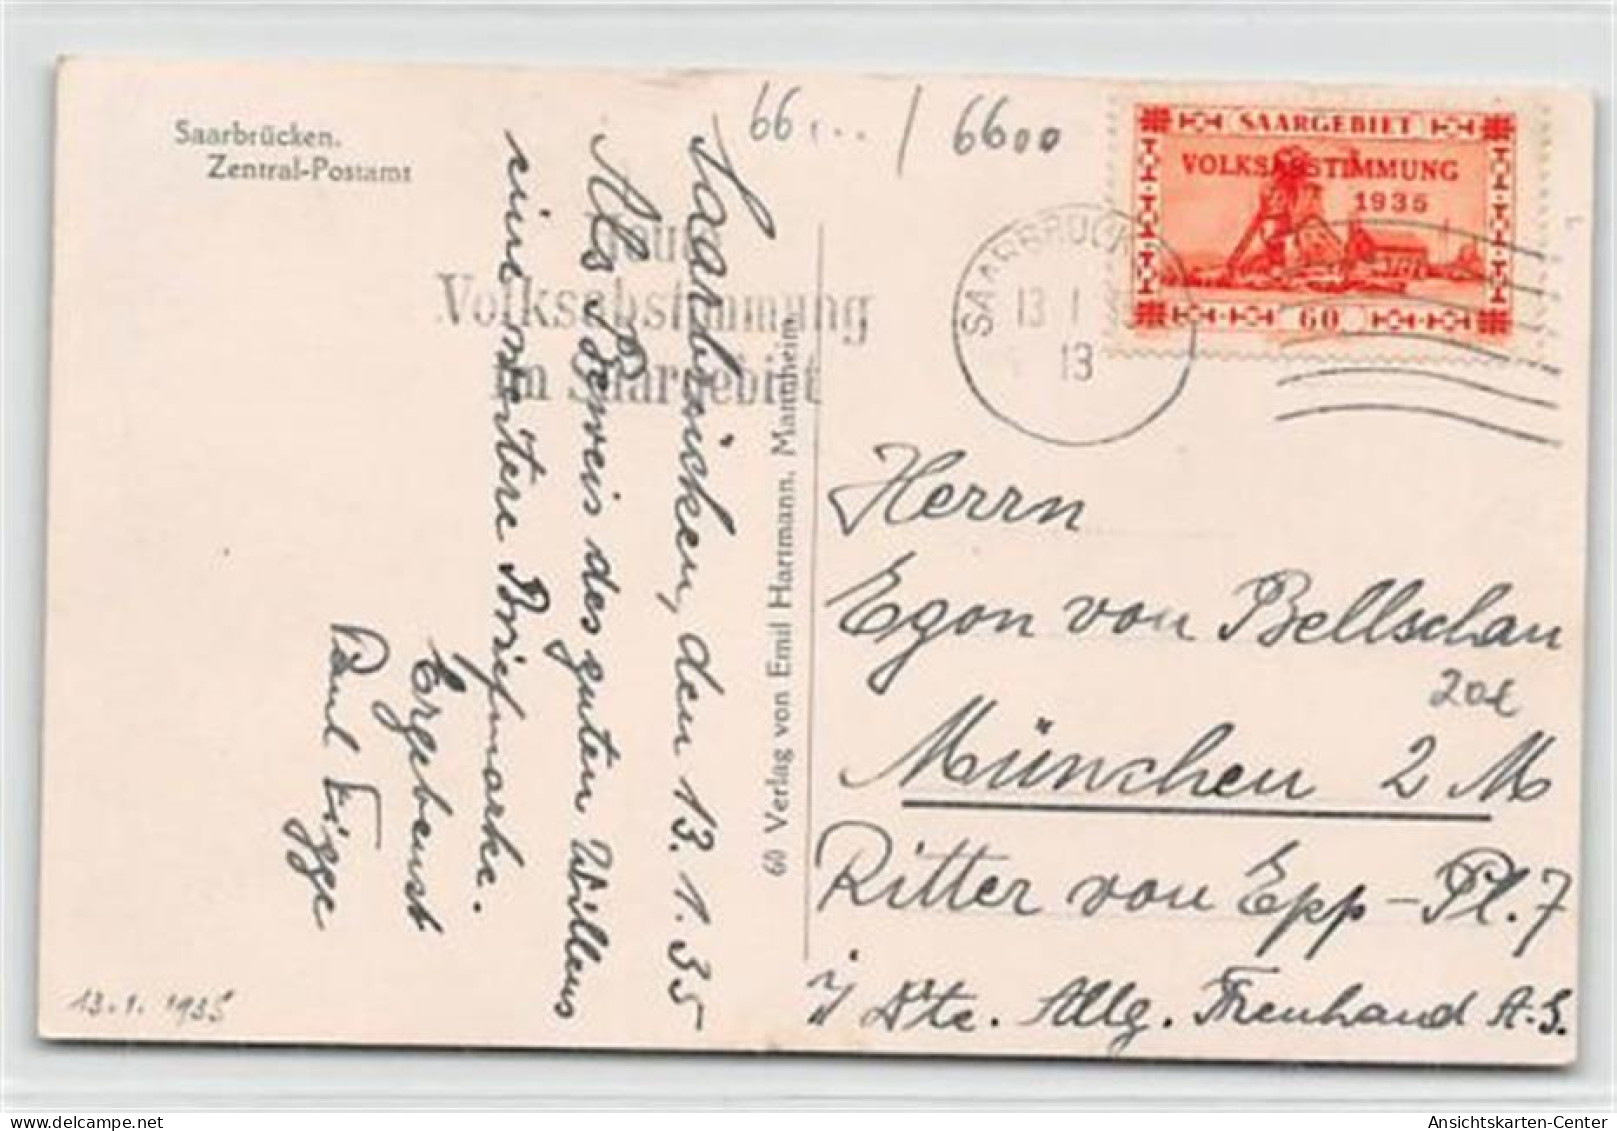 Saarbrücken.
Zentral-Postamt
66... / 6600
SAARGEBIET
VOLKSABSTIMMUNG
1935
60
SAARBRÜCK
13 1
13
Heute
Volksabstimmung
im Saargebiet
Saarbrücken, den 13.1.35
Als Beweis des guten Willens
eine weitere Briefmarke.
Ergebenst
Paul Figge
13.1.1935
60 Verlag von Emil Hartmann, Mannheim
Herrn
Egon von Bellschan
München 2 M
Ritter von Epp-Pl. 7
i/ Dte. Allg. Treuhand A.G.
delcampe.net
Ansichtskarten-Center